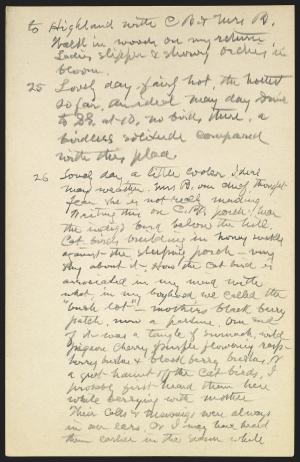 to Highland with C.B. & Mrs B.
Walk in woods on my return,
Ladies slipper & showy orchis in
bloom.
25 Lovely day, fairly hot, the hottest
so far, an ideal May day. Drive
to S.S. at 10, no birds there, a
birdless solitude compared
with this place
26 Lovely day, a little cooler, ideal
May weather. Mrs B. our chief thought
fear she is not really mending
Writing this on C.B's porch. Hear
the indigo bird below the hill.
Cat-birds building in honey suckle
against the sleeping porch - very
shy about it - How the cat bird is
associated in my mind with
what, in my boyhood we called the
"bush lot" - mothers black berry
patch, now a pasture, one end
of it was a tangle of sumach, wild
pigeon cherry, purple flowering rasp-
berry bushes & black berry bushes,
a great haunt of the cat birds, I
probably first heard them here
while berrying with mother
Their calls & mewings were always
in our ears. Or I may have heard
them earlier in the season while